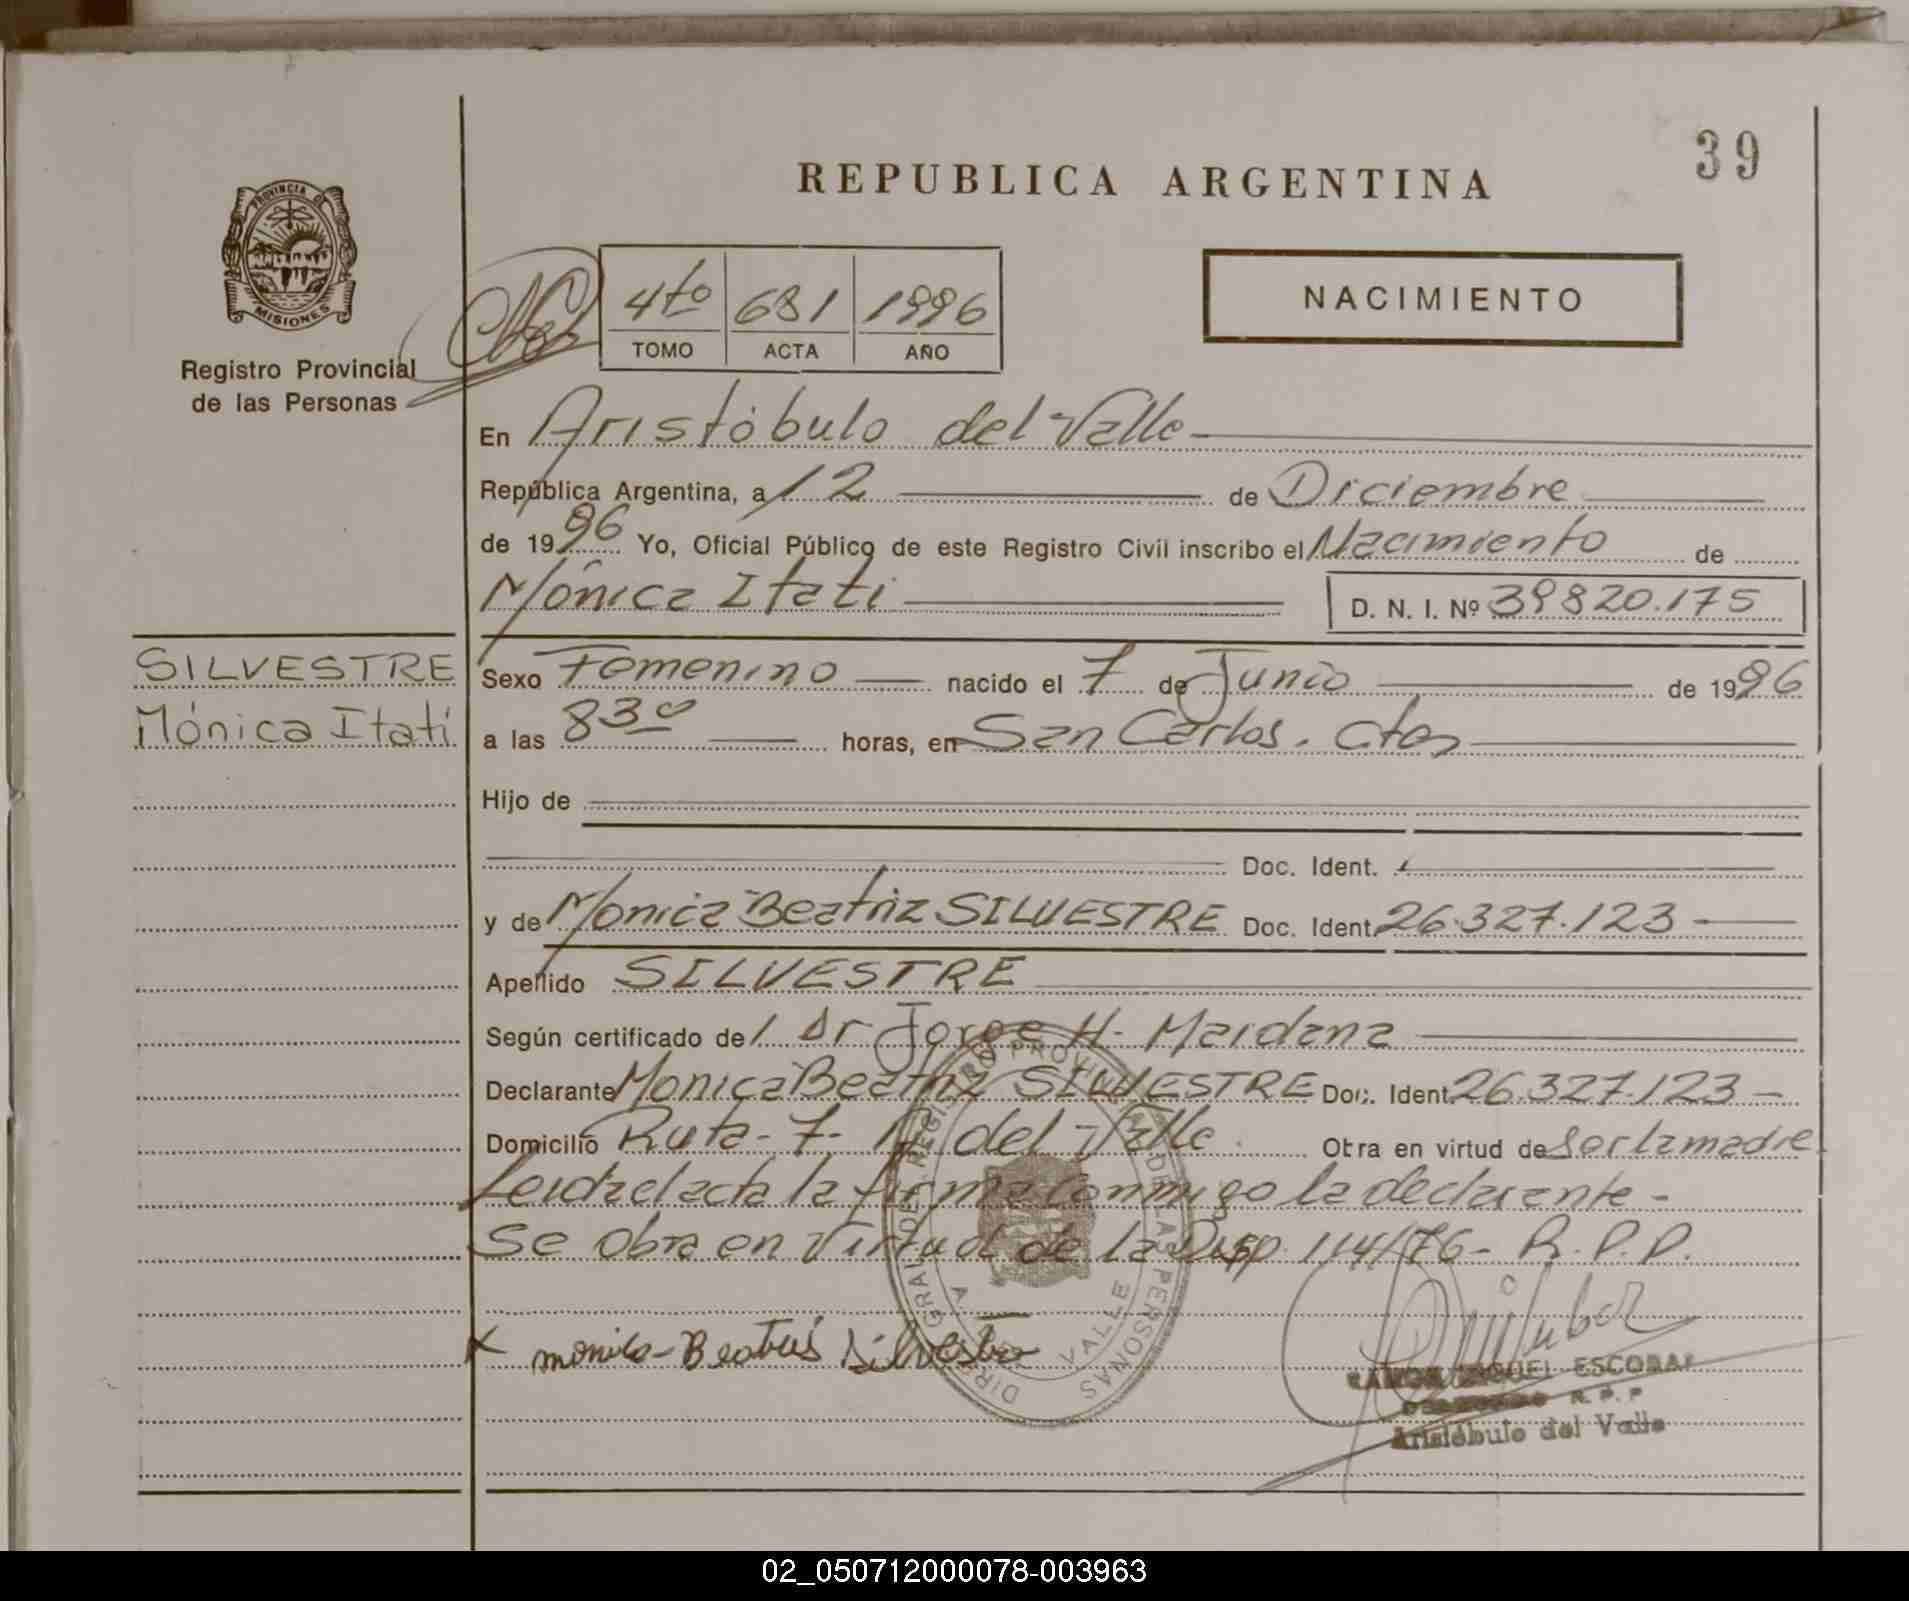 39
REPUBLICA ARGENTINA
PROVINCIA DE
MISIONES
Registro Provincial
de las Personas
4to 681 1996
TOMO ACTA AÑO
NACIMIENTO
En Aristóbulo del Valle
República Argentina, a 12 de Diciembre
de 1996 Yo, Oficial Público de este Registro Civil inscribo el Nacimiento de
Mónica Itati D. N. I. Nº 39820.175
SILVESTRE
Mónica Itatí
Sexo Femenino nacido el 7 de Junio de 1996
a las 8 30 horas, en San Carlos. Ctes
Hijo de
Doc. Ident.
y de Monica Beatriz SILVESTRE Doc. Ident. 26.327.123
Apellido SILVESTRE
Según certificado de Dr Jorge H. Maidana
Declarante Monica Beatriz SILVESTRE Doc. Ident. 26.327.123
Domicilio Ruta-7- A del Valle. Obra en virtud de Ser la madre
Leida el acta la firma conmigo la declarante-
Se obra en virtud de la Disp. 114/76- R.P.P.
x monica-Beatris Silvestre
DIREC GRAL DE REGISTRO PROVINCIAL DE LAS PERSONAS
A. DEL VALLE
RAMON MIGUEL ESCOBAR
R. P. P
Aristóbulo del Valle
02_050712000078-003963